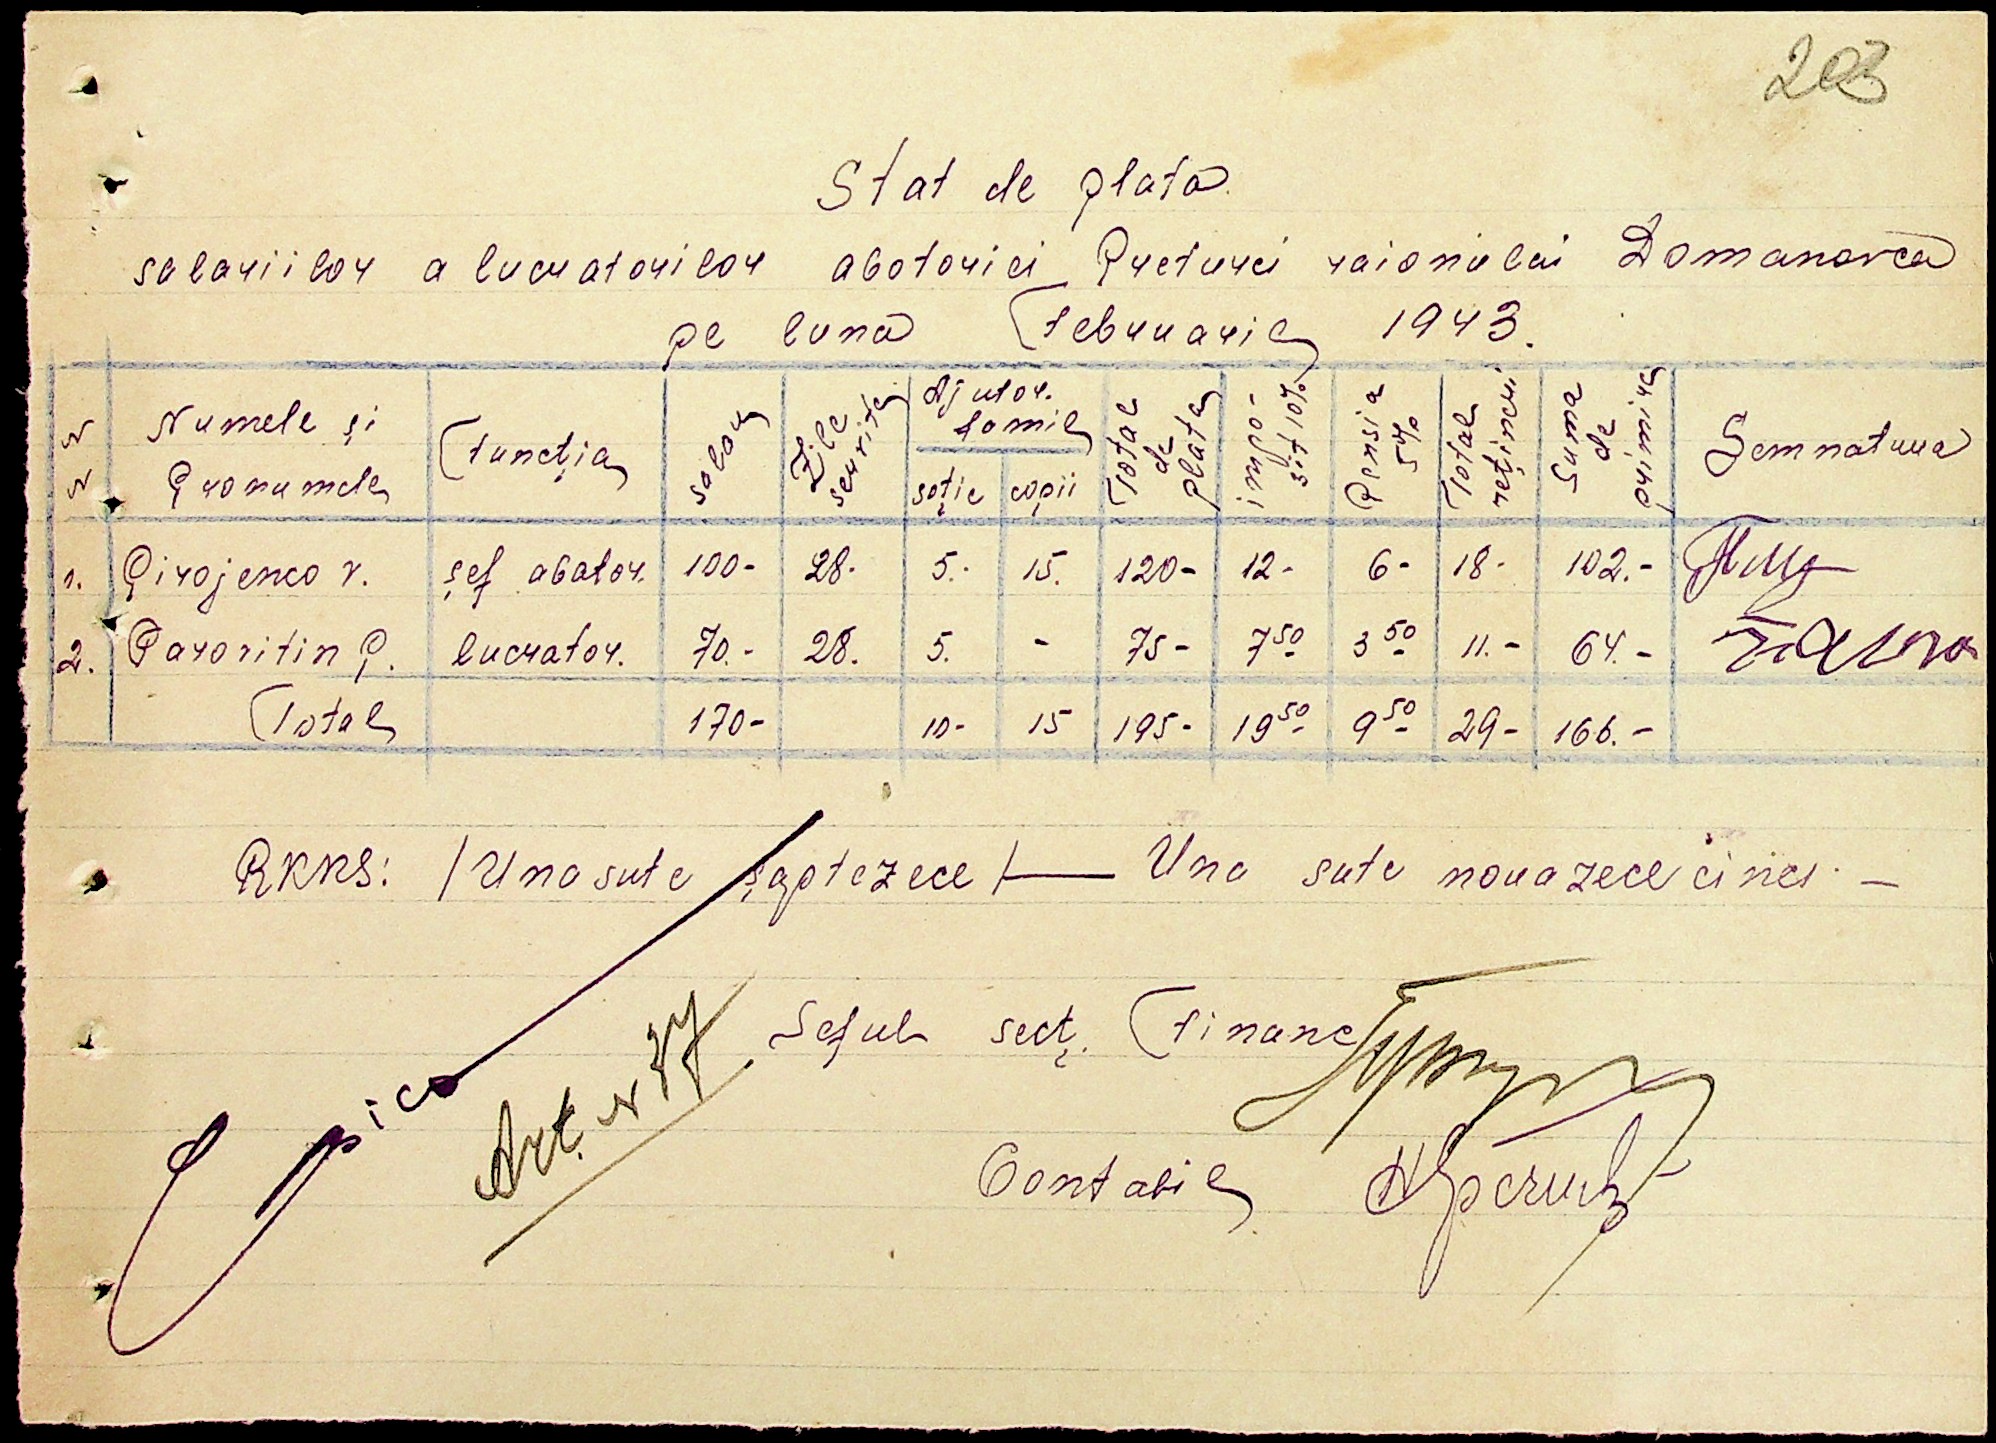 203
Stat de plată
salariilor a lucratorilor abatoriei Preturei raionului Domanovca
pe luna Februarie 1943.
N N | Numele și Pronumele | Funcția | salar | Zile servite | Ajutor. famil | Total de plata | impo-sit 10% | Pensia 5% | Total rețineri | Suma de primire | Semnatura
sotie | copii
1. | Pirojenco V. | șef abator. | 100- | 28. | 5.- | 15. | 120- | 12- | 6- | 18- | 102.-
2. | lucrator. | 70.- | 28. | 5. | - | 75- | 7 50 | 3 50 | 11.- | 64.-
Total | 170- | 10- | 15 | 195- | 19 50 | 9 50 | 29- | 166.-
RKKS: /Una sute șaptezece/ — Una sute nouazece cinci. —
Șeful secț. Financ
Art. N 37
Contabil